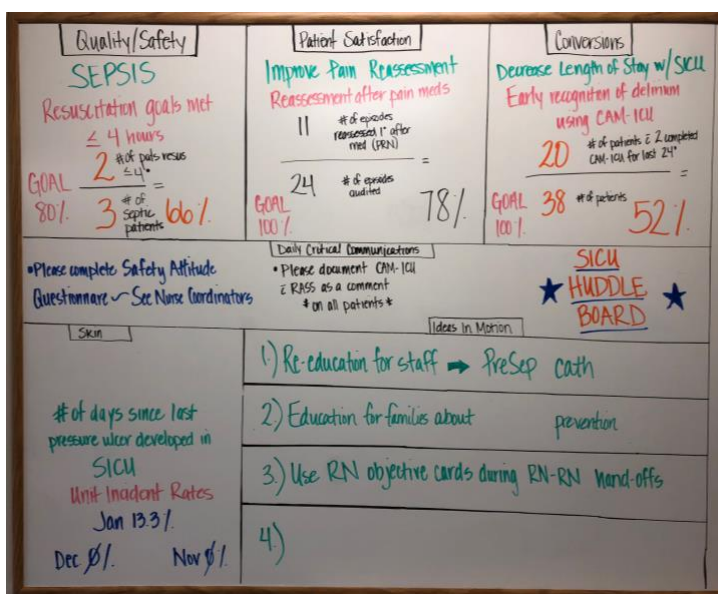 Quality/Safety
SEPSIS
Resuscitation goals met
≤ 4 hours
2 # of pats resus
≤4°
GOAL
80%
=
3 # of
septic
patients
66%
Patient Satisfaction
Improve Pain Reassessment
Reassessment after pain meds
11 # of episodes
reassessed 1° after
med (PRN)
=
24 # of episodes
audited
GOAL
100%
78%
Conversions
Decrease Length of Stay w/ SICU
Early recogniton of delirium
using CAM-ICU
20 # of patients c̄ 2 completed
CAM-ICU for last 24°
=
GOAL
100%
38 # of patients
52%
•Please complete Safety Attitude
Questionnare ~ See Nurse Coordinators
Daily Critical Communications
• Please document CAM-ICU
c̄ RASS as a comment
* on all patients *
★ SICU
HUDDLE
BOARD ★
Skin
# of days since last
pressure ulcer developed in
SICU
Unit Incident Rates
Jan 13.3%
Dec 0% Nov 0%
Ideas In Motion
1.) Re-education for staff ➡ PreSep cath
2.) Education for families about prevention
3.) Use RN objective cards during RN-RN hand-offs
4.)